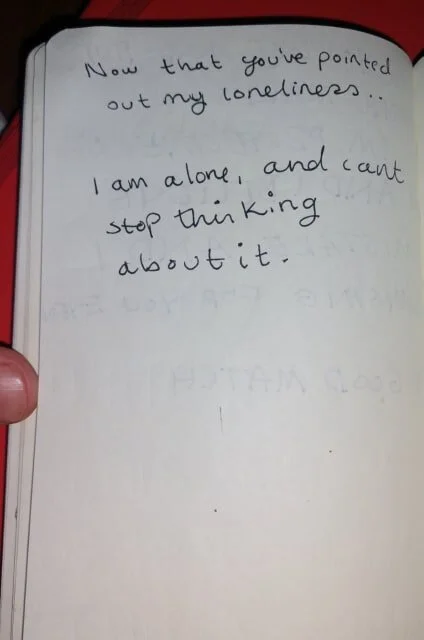 Now that you've pointed
out my loneliness..
I am alone, and cant
stop thinking
about it.